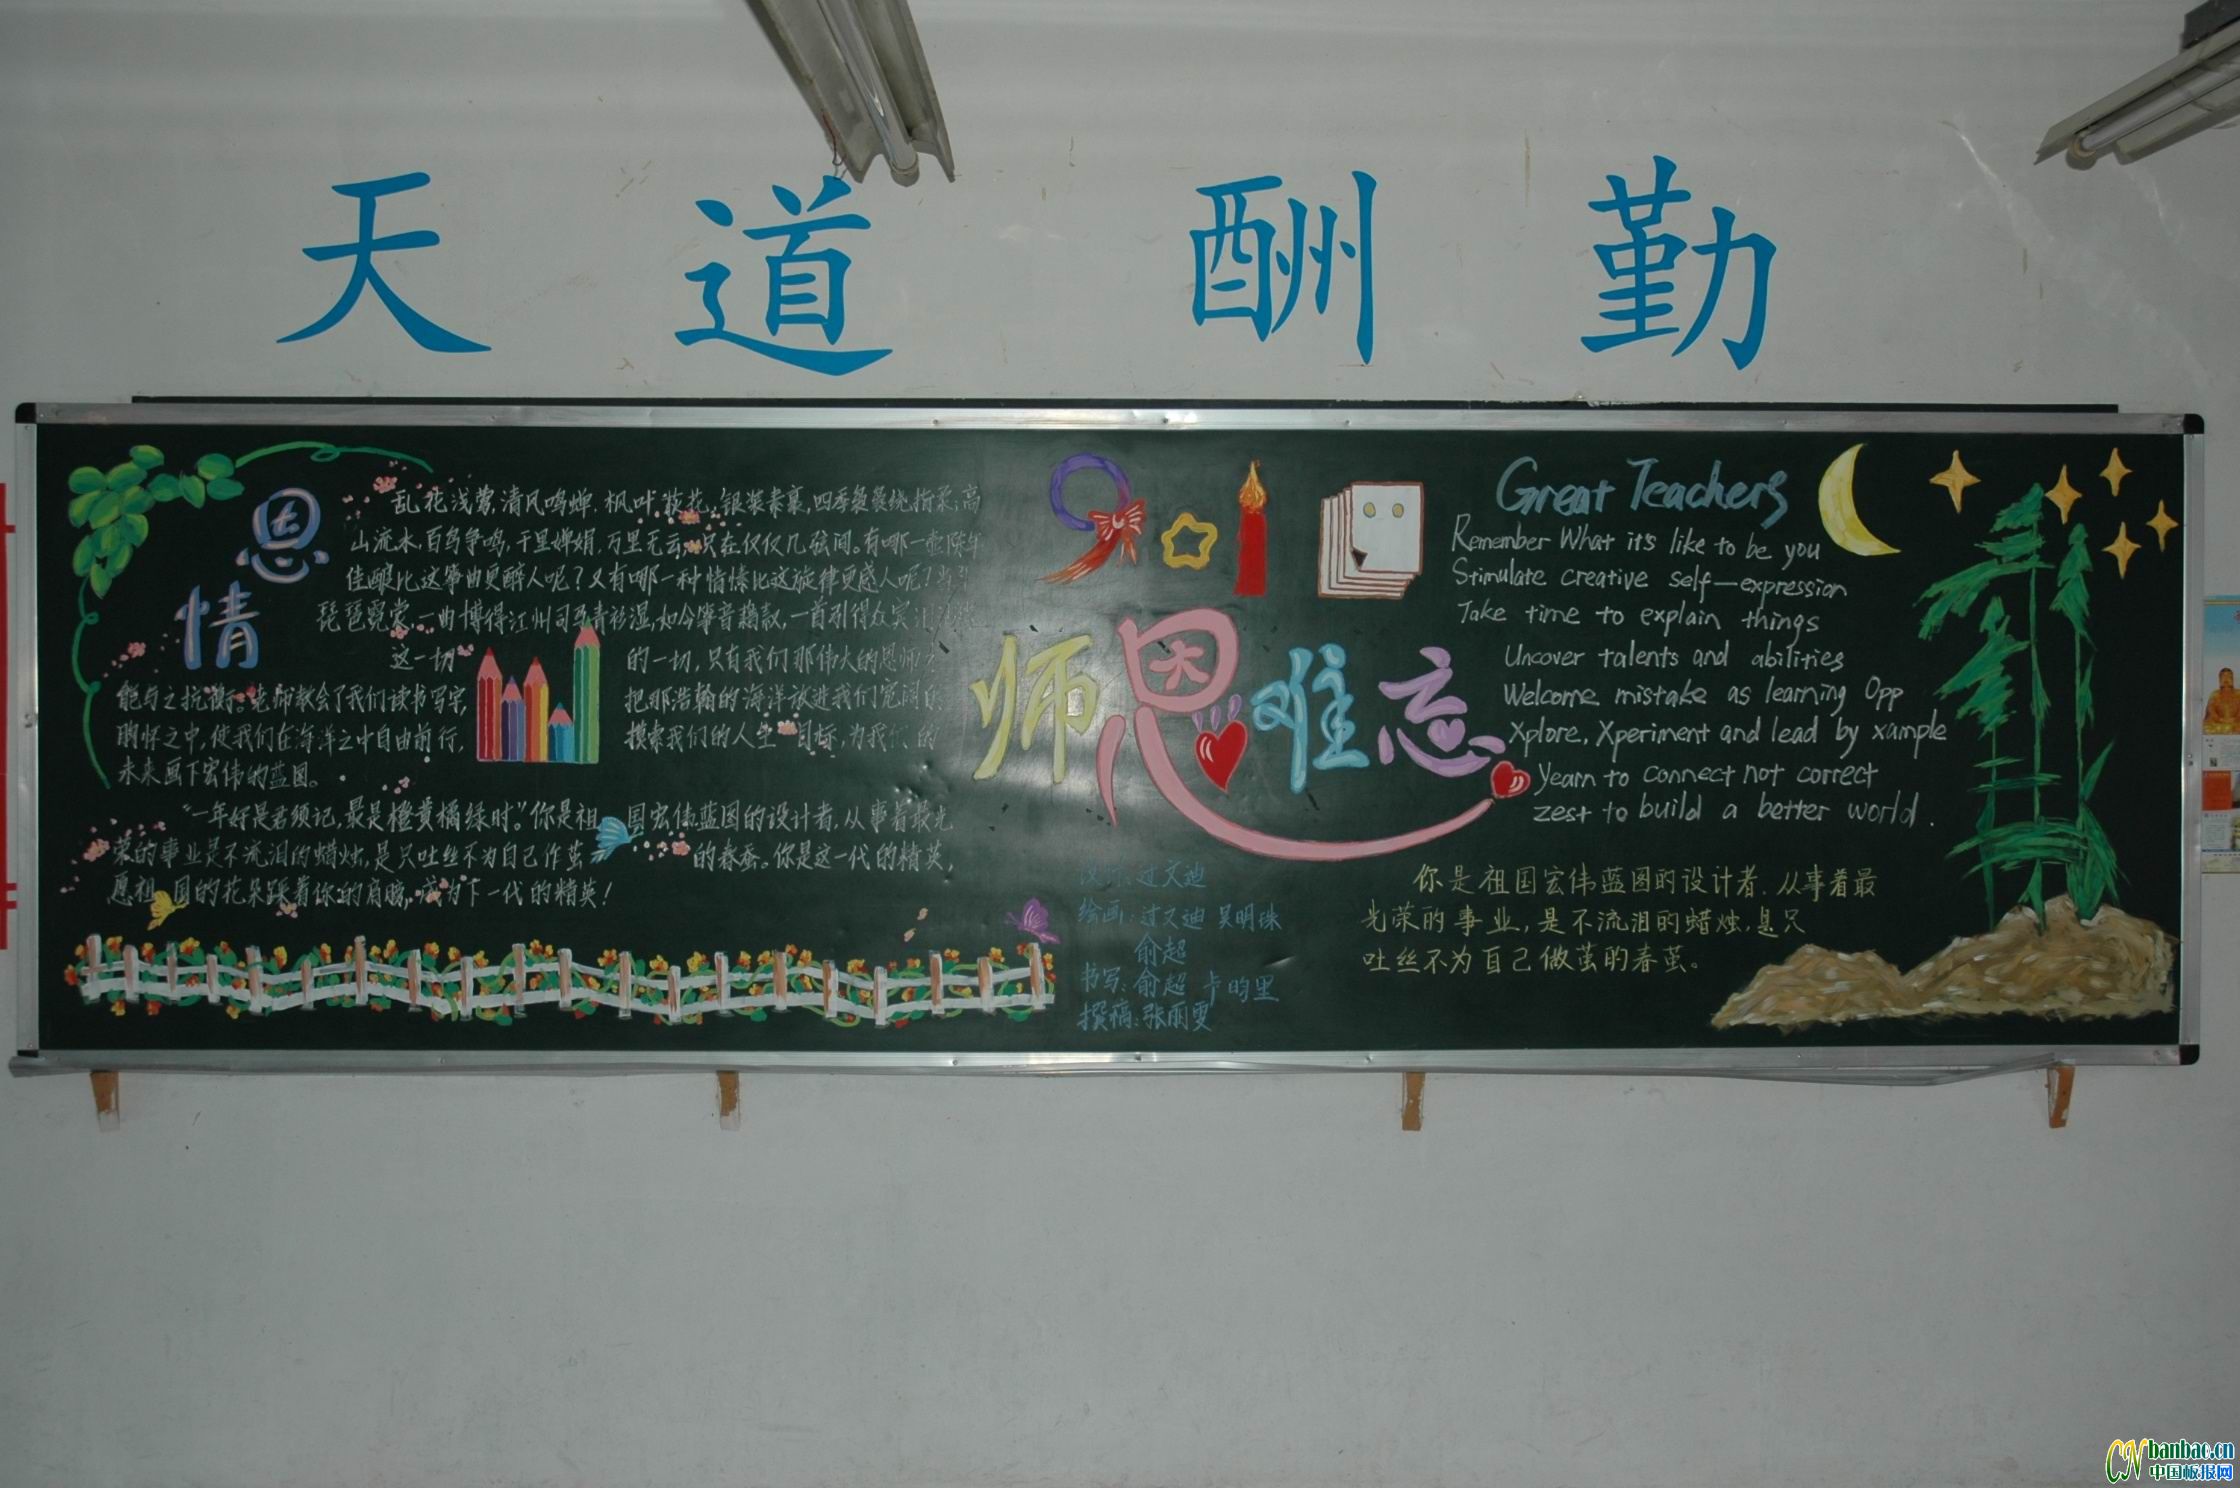 天道酬勤
恩情
乱花浅莺,清风鸣蝉,枫叶荻花,银装素裹,四季袅袅绕指柔;高
山流水,百鸟争鸣,千里婵娟,万里无云,只在仅仅几弦间。有哪一坛陈年
佳酿比这筝曲更醉人呢?又有哪一种情愫比这旋律更感人呢?当
琵琶霓裳,一曲博得江州司马青衫湿,如今筝音款,一首引得众宾
这一切的一切,只有我们那伟大的恩师才
能与之抗衡。老师教会了我们读书写字,把那浩瀚的海洋放进我们宽阔的
胸怀之中,使我们在海洋之中自由前行,摸索我们的人生目标,为我们的
未来画下宏伟的蓝图。
“一年好是君须记,最是橙黄橘绿时。”你是祖国宏伟蓝图的设计者,从事着最光
荣的事业是不流泪的蜡烛,是只吐丝不为自己作茧的春蚕。你是这一代的精英,
愿祖国的花朵踩着你的肩膀,成为下一代的精英!
师恩难忘
过文迪
绘画:过文迪 吴明珠
俞超
书写:俞超 卞昀里
撰稿:张丽雯
Great Teachers
Remember What it's like to be you
Stimulate creative self—expression
Take time to explain things
Uncover talents and abilities
Welcome mistake as learning Opp
Xplore, Xperiment and lead by xample
Yearn to connect not correct
zest to build a better world.
你是祖国宏伟蓝图的设计者,从事着最
光荣的事业,是不流泪的蜡烛,是只
吐丝不为自己做茧的春茧。
CN banbao.cn
中国板报网